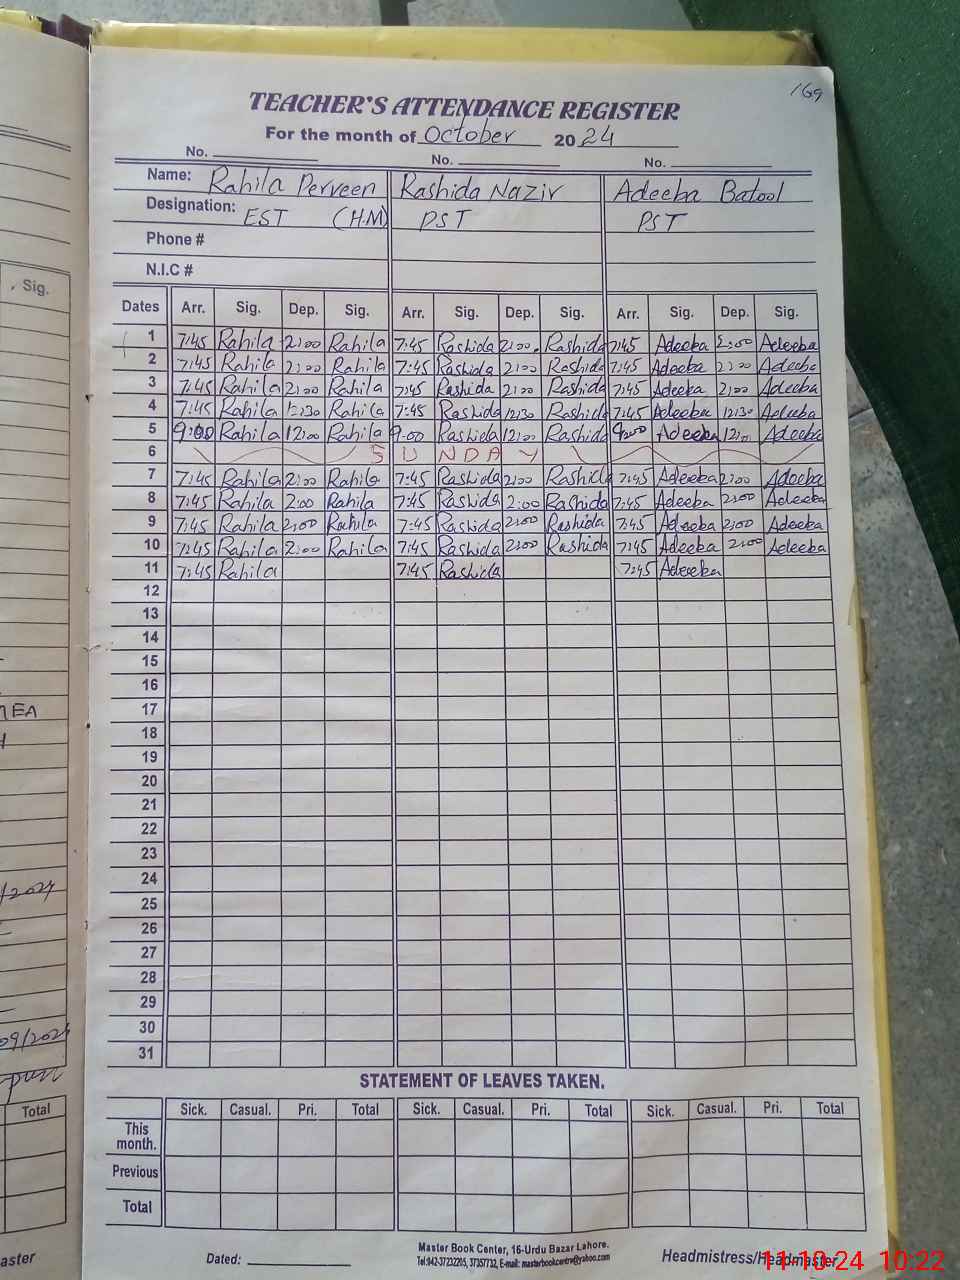 169
TEACHER'S ATTENDANCE REGISTER
For the month of October 2024
No. No. No.
Name: Rahila Perveen Rashida Nazir Adeeba Batool
Designation: EST (H.M) PST PST
Phone #
N.I.C #
Sig.
Dates Arr. Sig. Dep. Sig. Arr. Sig. Dep. Sig. Arr. Sig. Dep. Sig.
1 7:45 Rahila 2:00 Rahila 7:45 Rashida 2:00 Rashida 7:45 Adeeba 2:00 Adeeba
2 7:45 Rahila 2:00 Rahila 7:45 Rashida 2:00 Rashida 7:45 Adeeba 2:00 Adeeba
3 7:45 Rahila 2:00 Rahila 7:45 Rashida 2:00 Rashida 7:45 Adeeba 2:00 Adeeba
4 7:45 Rahila 12:30 Rahila 7:45 Rashida 12:30 Rashida 7:45 Adeeba 12:30 Adeeba
5 9:00 Rahila 12:00 Rahila 9:00 Rashida 12:00 Rashida 9:00 Adeeba 12:00 Adeeba
6 SUNDAY
7 7:45 Rahila 2:00 Rahila 7:45 Rashida 2:00 Rashida 7:45 Adeeba 2:00 Adeeba
8 7:45 Rahila 2:00 Rahila 7:45 Rashida 2:00 Rashida 7:45 Adeeba 2:00 Adeeba
9 7:45 Rahila 2:00 Rahila 7:45 Rashida 2:00 Rashida 7:45 Adeeba 2:00 Adeeba
10 7:45 Rahila 2:00 Rahila 7:45 Rashida 2:00 Rashida 7:45 Adeeba 2:00 Adeeba
11 7:45 Rahila 7:45 Rashida 7:45 Adeeba
12
13
14
15
16
17
18
19
20
21
22
23
24
25
26
27
28
29
30
31
STATEMENT OF LEAVES TAKEN.
Sick. Casual. Pri. Total Sick. Casual. Pri. Total Sick. Casual. Pri. Total
This month.
Previous
Total
Total
Dated:
Master Book Center, 16-Urdu Bazar Lahore.
Tel:042-37232205, 37357732, E-mail: masterbookcentre@yahoo.com
Headmistress/Headmaster
11-10-24 10:22